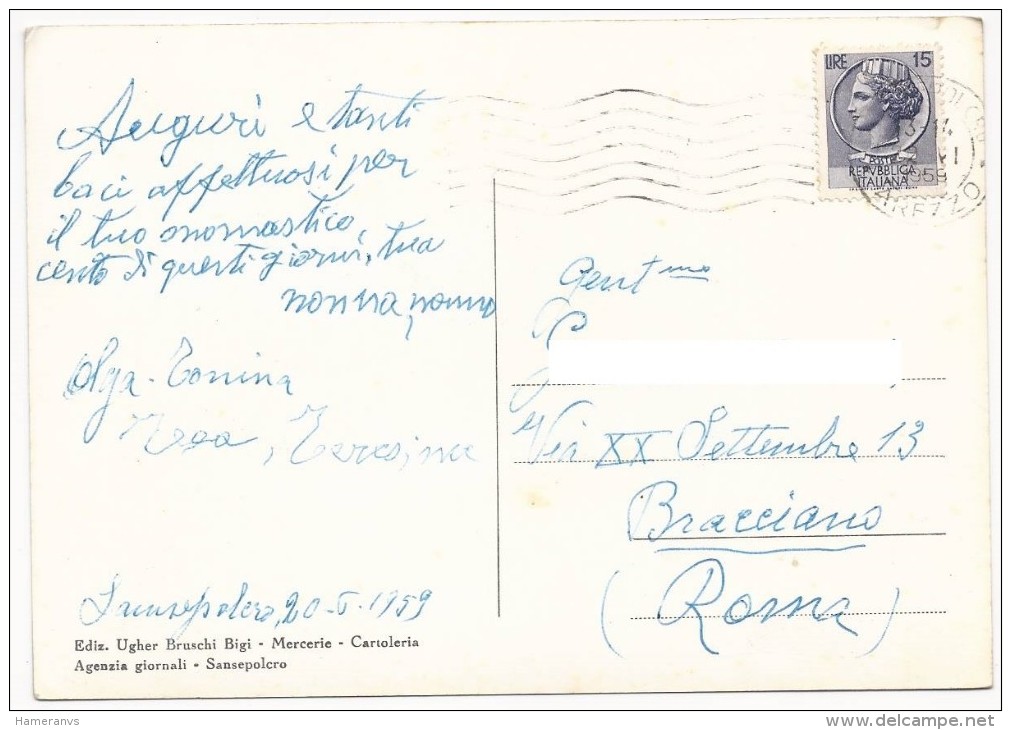 Auguri e tanti
baci affettuosi per
il tuo onomastico,
cento di questi giorni, tua
nonna, nonno
Olga - Tonina
Teresina
Sansepolcro, 20-6-1959
Ediz. Ugher Bruschi Bigi - Mercerie - Cartoleria
Agenzia giornali - Sansepolcro
LIRE 15
POSTE
REPVBBLICA
ITALIANA
1959
AREZZO
Gent.mo
Via XX Settembre 13
Bracciano
(Roma)
Hameranvs
delcampe.net